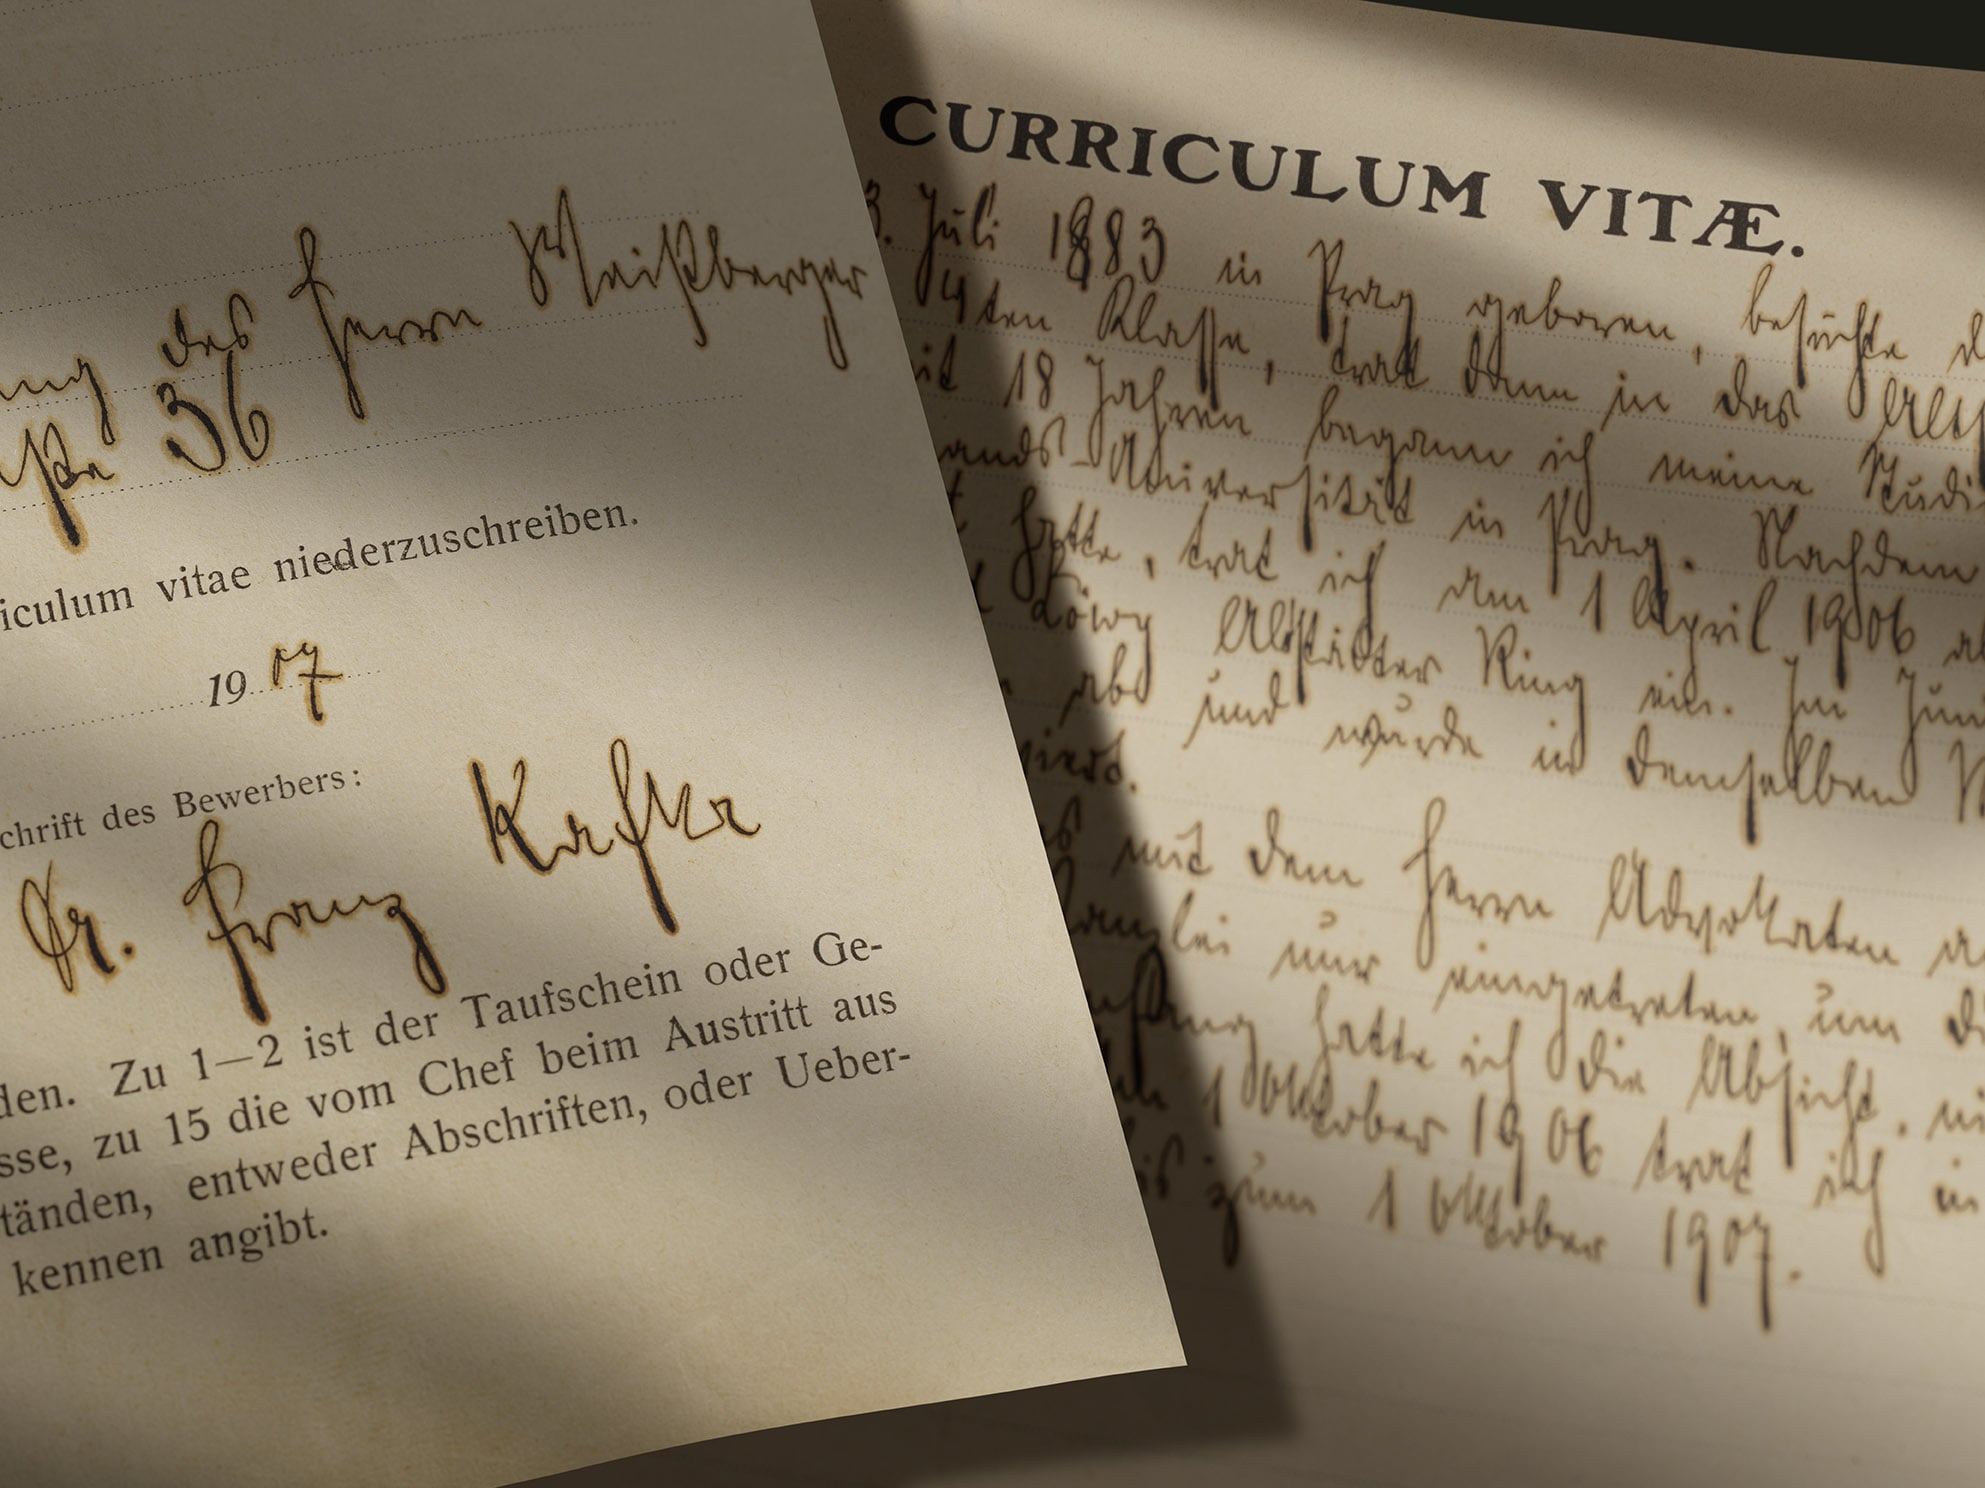 ung des Herrn Weißberger
aße 36
riculum vitae niederzuschreiben.
19 07
schrift des Bewerbers:
Dr. Franz Kafka
den. Zu 1—2 ist der Taufschein oder Ge-
sse, zu 15 die vom Chef beim Austritt aus
tänden, entweder Abschriften, oder Ueber-
kennen angibt.
CURRICULUM VITÆ.
3. Juli 1883 in Prag geboren, besuchte d
4ten Klasse, trat dann in das Alts
it 18 Jahren begann ich meine Studi
ands-Universität in Prag. Nachdem
t hatte, trat ich am 1 April 1906 al
Löwy Altstädter Ring ein. Im Juni
ab und wurde in demselben
viert.
es mit dem Herrn Advokaten a
Kanzlei nur eingetreten, um d
Anfang hatte ich die Absicht, ni
Am 1 Oktober 1906 trat ich in
bis zum 1 Oktober 1907.